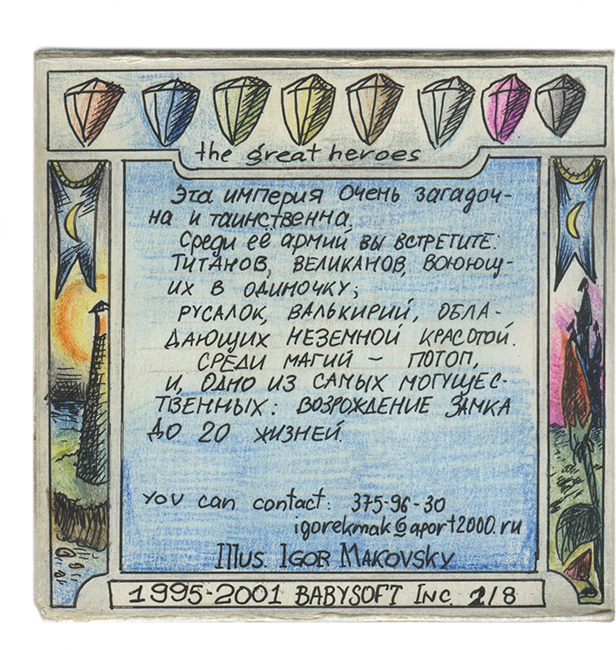 the great heroes
Эта империя очень загадоч-
на и таинственна.
Среди её армий вы встретите:
титанов, великанов, воюющ-
их в одиночку;
русалок, валькирий, обла-
дающих неземной красотой.
Среди магий – потоп,
и, одно из самых могущес-
твенных: возрождение замка
до 20 жизней.
you can contact: 375-96-30
igorekmak@aport2000.ru
Illus. Igor Makovsky
1995-2001 BABYSOFT Inc. 2/8